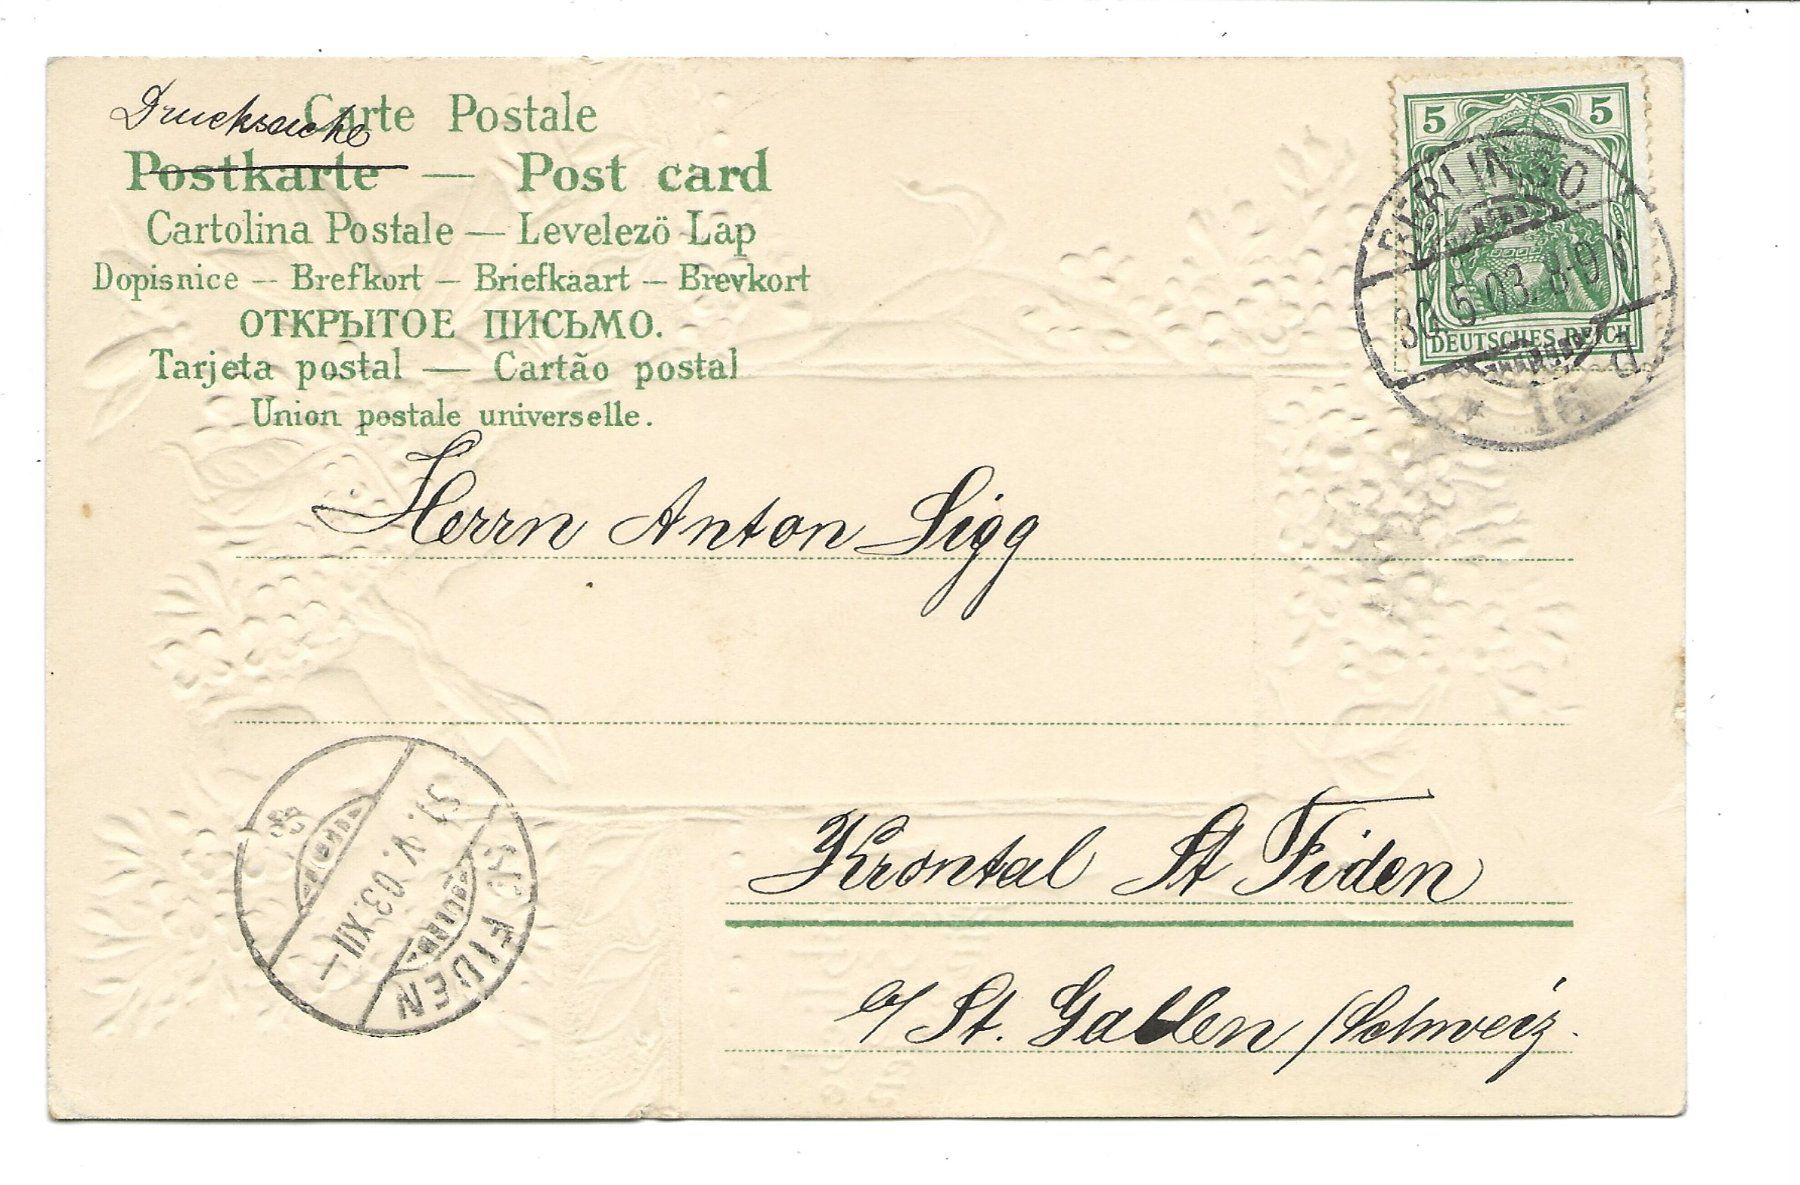 Drucksache
Carte Postale
Postkarte — Post card
Cartolina Postale — Levelezö Lap
Dopisnice — Brefkort — Briefkaart — Brevkort
ОТКРЫТОЕ ПИСЬМО.
Tarjeta postal — Cartão postal
Union postale universelle.
5 5
DEUTSCHES REICH
BERLIN SO
30.5.03.8-9V.
16 d
Herrn Anton Sigg
Krontal St Fiden
a/ St. Gallen /Schweiz.
ST. FIDEN
31.V.03.XII—